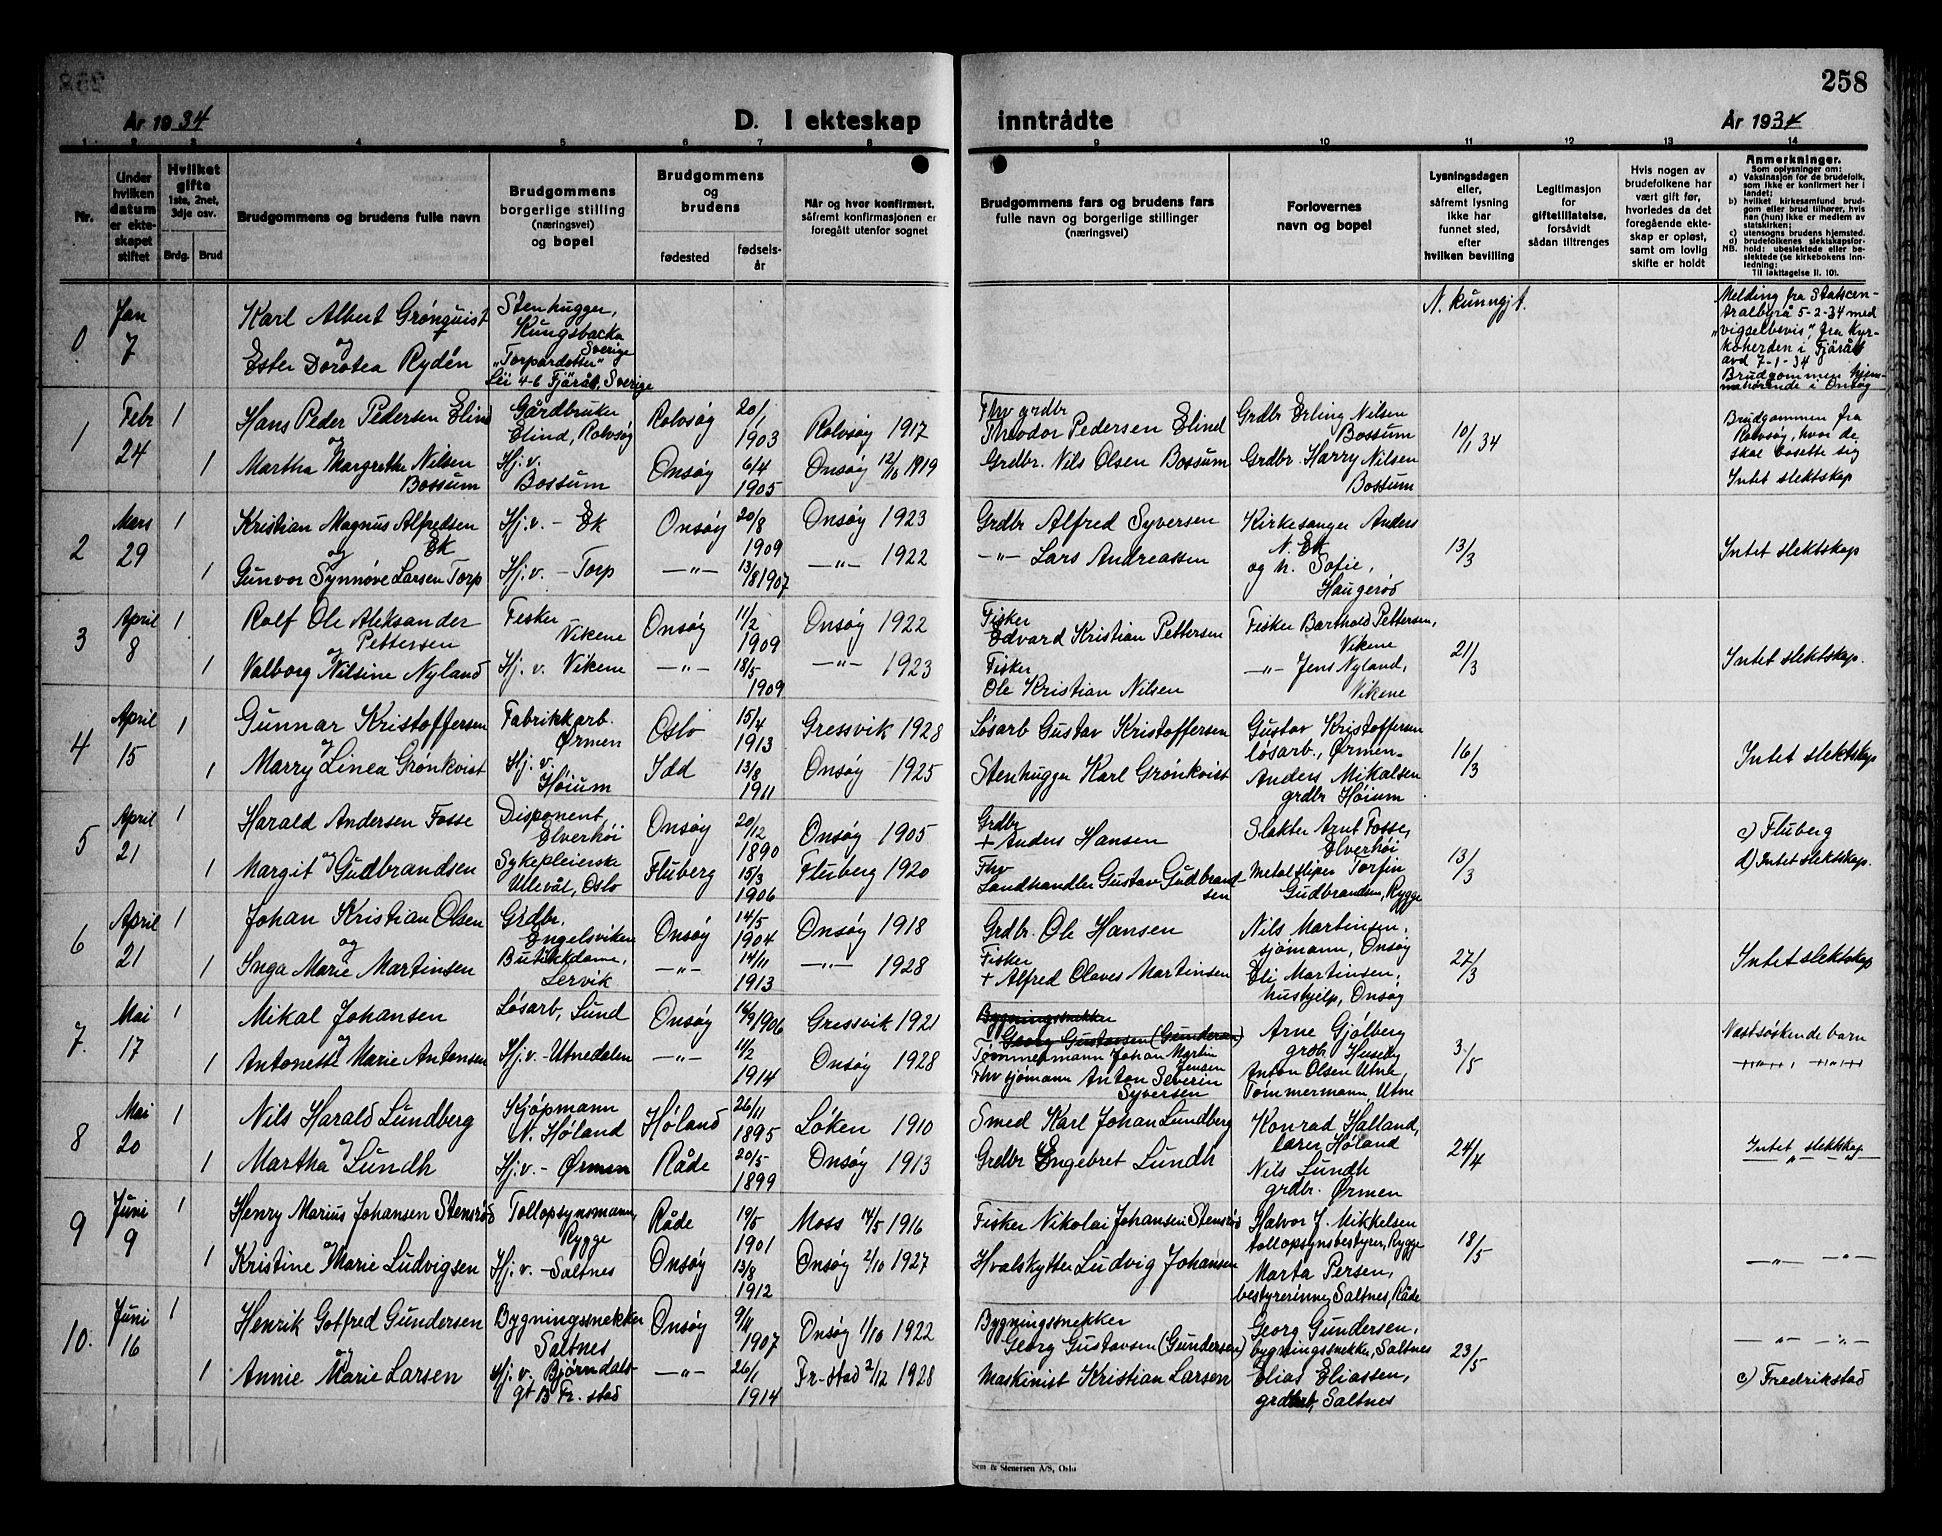 258
År 1934
D. I ekteskap
inntrådte
År 1934
1 2 3 4 5 6 7 8 9 10 11 12 13 14
Nr.
Under
hvilken
datum
er ekte-
skapet
stiftet
Hvilket
gifte
1ste, 2net,
3dje osv.
Brdg. Brud
Brudgommens og brudens fulle navn
Brudgommens
borgerlige stilling
(næringsvei)
og bopel
Brudgommens
og
brudens
fødested
fødsels-
år
Når og hvor konfirmert,
såfremt konfirmasjonen er
foregått utenfor sognet
Brudgommens fars og brudens fars
fulle navn og borgerlige stillinger
(næringsvei)
Forlovernes
navn og bopel
Lysningsdagen
eller,
såfremt lysning
ikke har
funnet sted,
efter
hvilken bevilling
Legitimasjon
for
giftetillatelse,
forsåvidt
sådan tiltrenges
Hvis nogen av
brudefolkene har
vært gift før,
hvorledes da det
foregående ekte-
skap er opløst,
samt om lovlig
skifte er holdt
Anmerkninger.
Som oplysninger om:
a) Vaksinasjon for de brudefolk,
som ikke er konfirmert her i
landet;
b) hvilket kirkesamfund brud-
gom eller brud tilhører, hvis
han (hun) ikke er medlem av
statskirken;
c) utensogns brudens hjemsted.
d) brudefolkenes slektskapsfor-
NB. hold: ubeslektede eller be-
slektede (se kirkebokens inn-
ledning:
Til iakttagelse II. 10).
0
Jan
7
Karl Albert Grönquist
og
Ester Dorotea Rydén
Stenhugger,
Kungsbacka
Sverige
"Torpardotter"
Lii 4-6 Fjärås, Sverige
N. kunngjt.
Melding fra Statscen-
tralbyrå 5-2-34 med
"vigselbevis" fra Kyr-
koherden i Fjärås
avd 7-1-34
Brudgommen hjem-
mehørende i Onsøy
1
Febr
24
1
1
Hans Peder Pedersen Elind
og
Martha Margrethe Nilsen
Bossum
Gårdbruker
Elind, Rolvsøy
Hj. v.
Bossum
Rolvsøy
Onsøy
20/1
1903
6/4
1905
Rolvsøy 1917
Onsøy 12/10 1919
Fhv grdbr
Theodor Pedersen Elind
Grdbr. Nils Olsen Bossum
Grdbr Erling Nilsen
Bossum
Grdbr. Harry Nilsen
Bossum
10/1 34
Brudgommen fra
Rolvsøy, hvor de
skal bosette sig
Intet slektskap
2
Mars
29
1
1
Kristian Magnus Alfredsen
og Ek
Gunvor Synnøve Larsen Torp
Hj. v. - Ek
Hj. v. - Torp
Onsøy
-"-
20/8
1909
13/8 1907
Onsøy 1923
-"- 1922
Grdbr Alfred Syversen
-"- Lars Andreassen
Kirkesanger Anders
N. Ek
og h. Sofie,
Haugerød
13/3
Intet slektskap
3
April
8
1
1
Rolf Ole Aleksander
Pettersen
og
Valborg Nilsine Nyland
Fisker
Vikene
Hj. v. Vikene
Onsøy
-"-
11/2
1909
18/5
1909
Onsøy 1922
-"- 1923
Fisker
Edvard Kristian Pettersen
Fisker
Ole Kristian Nilsen
Fisker Barthold Pettersen,
Vikene
-"- Jens Nyland,
Vikene
21/3
Intet slektskap.
4
April
15
1
1
Gunnar Kristoffersen
og
Marry Linea Grönkvist
Fabrikkarb.
Ørmen
Hj. v.
Høium
Oslo
Idd
15/4
1913
13/8
1911
Gressvik 1928
Onsøy 1925
Løsarb Gustav Kristoffersen
Stenhugger Karl Grönkvist
Gustav Kristoffersen
løsarb., Ørmen-
Anders Mikalsen
grdbr Høium
16/3
Intet slektskap
5
April
21
1
1
Harald Andersen Fosse
og
Margit Gudbrandsen
Disponent,
Elverhøi
Sykepleierske
Ullevål, Oslo
Onsøy
Fluberg
20/12
1890
15/3
1906
Onsøy 1905
Fluberg 1920
Grdbr
+ Anders Hansen
Fhv
Landhandler Gustav Gudbrand
sen
Slakter Arnt Fosse,
Elverhøi
Metalsliper Torfin
Gudbrandsen, Rygge
13/3
c) Fluberg
d) Intet slektskap.
6
April
21
1
1
Johan Kristian Olsen
og
Inga Marie Martinsen
Grdbr.
Engelsviken
Butikkdame,
Lervik
Onsøy
-"-
14/5
1904
14/11
1913
Onsøy 1918
-"- 1928
Grdbr. Ole Hansen
Fisker
+ Alfred Olaves Martinsen
Nils Martinsen,
sjømann, Onsøy
Eli Martinsen,
hushjelp, Onsøy
27/3
Intet slektskap
7.
Mai
17
1
1
Mikal Johansen
og
Antonette Marie Antonsen
Løsarb, Lund
Hj. v. - Utnedalen
Onsøy
-"-
16/9 1906
11/2
1914
Gressvik 1921
Onsøy 1928
Bygningssnekker
Georg Gustavsen (Gundersen)
Tømmermann Johan Martin
Jensen
Fhv sjømann Anton Severin
Syversen
Arne Gjølberg
grdb Huseby
Anton Olsen Utne,
Tømmermann, Utne
3/5
Næstsøskendebarn
8
Mai
20
1
1
Nils Harald Lundberg
og
Martha Lundh
Kjøpmann
N. Høland
Hj. v. - Ørmen
Høland
Råde
26/11
1895
20/5
1899
Løken 1910
Onsøy 1913
Smed Karl Johan Lundberg
Grdbr Engebret Lundh
Konrad Halland,
lærer, Høland
Nils Lundh
grdbr. Ørmen
24/4
Intet slektskap
9
Juni
9
1
1
Henry Marius Johansen Stensrød
og
Kristine Marie Ludvigsen
Tollopsynsmann,
Rygge
Hj. v. - Saltnes
Råde
Onsøy
19/5
1901
13/8
1912
Moss 14/5 1916
Onsøy 2/10 1927
Fisker Nikolai Johansen Stensrød
Hvalskytter Ludvig Johansen
Halvor J. Mikkelsen
tollopsynsbestyrer, Rygge
Marta Persen,
bestyrerinne, Saltnes, Råde
18/5
-"- -"-
10.
Juni
16
1
1
Henrik Gotfred Gundersen
og
Annie Marie Larsen
Bygningssnekker
Saltnes
Hj. v. Bjørndals-
gt B Fr. stad
Onsøy
-"-
9/4
1907
26/1
1914
Onsøy 1/10 1922
Fr-stad 2/12 1928
Bygningssnekker
Georg Gustavsen (Gundersen)
Maskinist Kristian Larsen
Georg Gundersen,
bygningssnekker, Saltnes
Elias Eliassen,
grdbr, Saltnes
23/5
-"- -"-
c) Fredrikstad
Sem & Stenersen A/S, Oslo